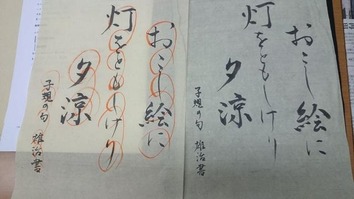 おこし絵に
灯をともしけり
夕涼
子規の句 雄治書
おこし絵に
灯をともしけり
夕涼
子規の句 雄治書